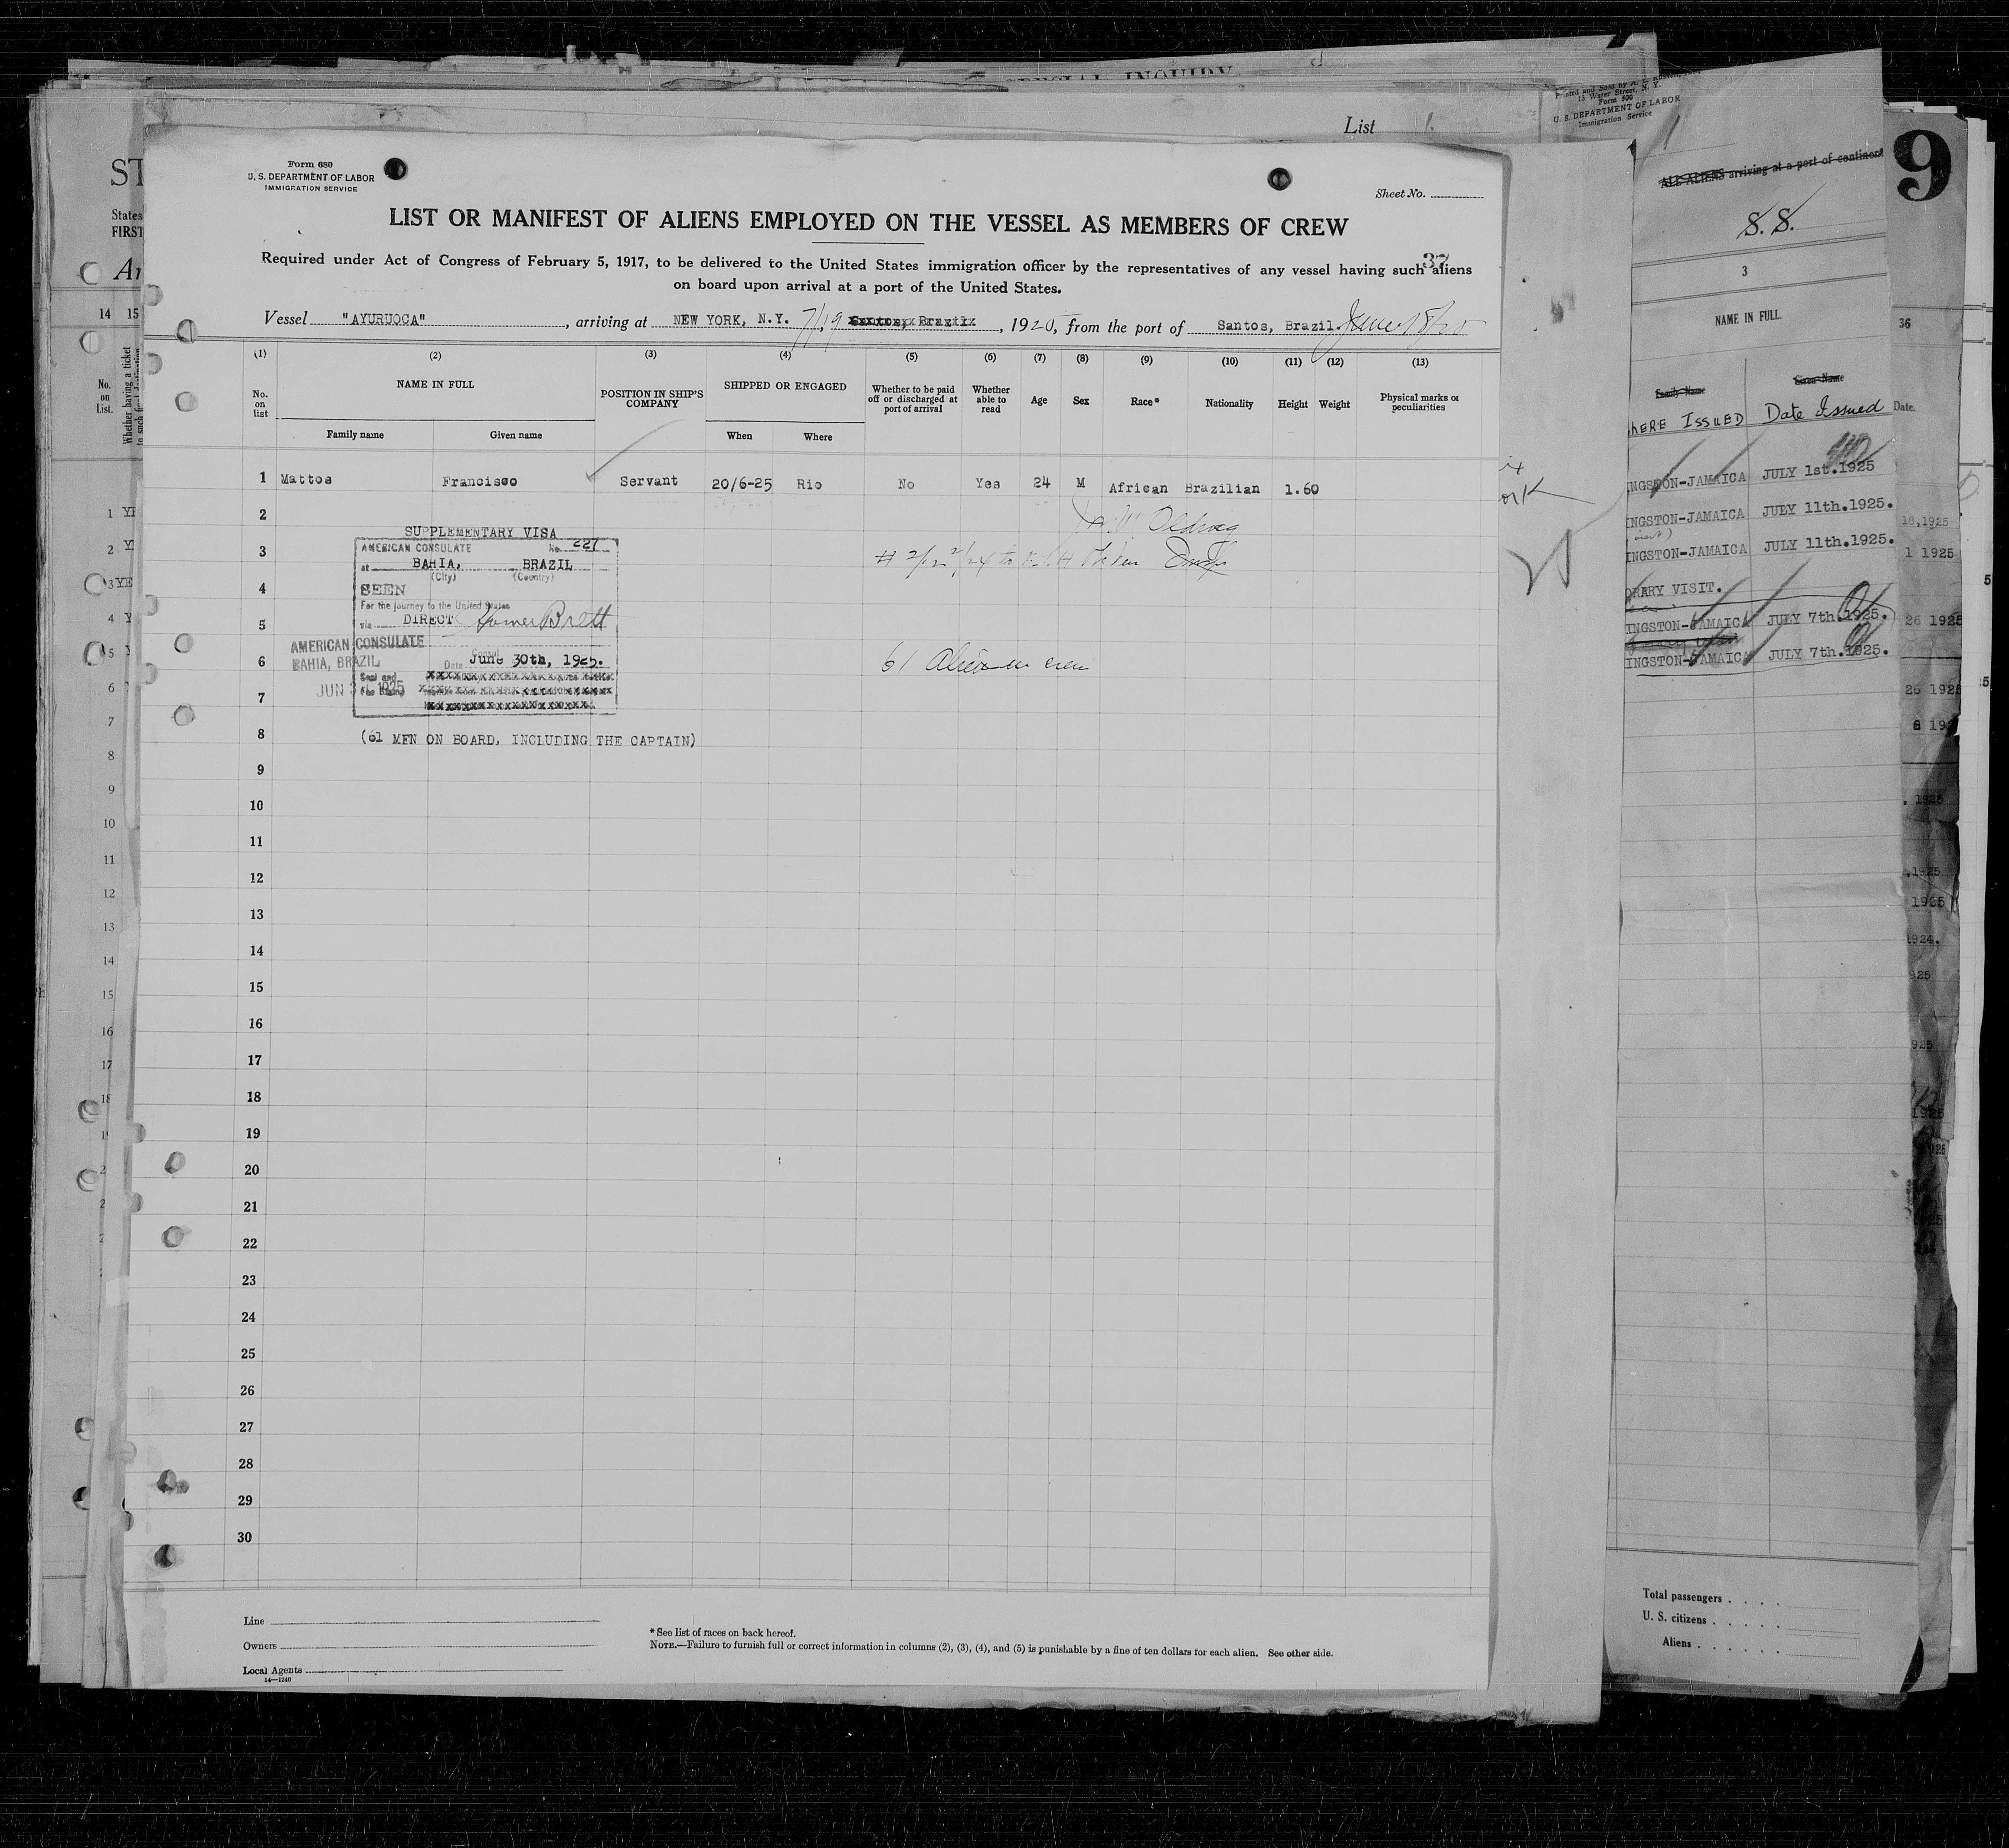 SPECIAL INQUIRY
List 1.
Printed and Sold by
13 Water Street, N. Y.
Form 500
U. S. DEPARTMENT OF LABOR
Immigration Service
9
ALL ALIENS arriving at a port of continent
S. S.
3
NAME IN FULL
36
Family Name Given Name
HERE ISSUED Date Issued Date.
INGSTON-JAMAICA JULY 1st.1925
INGSTON-JAMAICA JULY 11th.1925.
18,1925
INGSTON-JAMAICA JULY 11th.1925.
1 1925
ORARY VISIT.
INGSTON-JAMAICA JULY 7th.1925.
26 1925
INGSTON-JAMAICA JULY 7th.1925.
26 1925
Total passengers
U. S. citizens
Aliens
ST
States
FIRST
Ar
14 15
No. on List.
Whether having a ticket
Form 680
U. S. DEPARTMENT OF LABOR
IMMIGRATION SERVICE
Sheet No.
LIST OR MANIFEST OF ALIENS EMPLOYED ON THE VESSEL AS MEMBERS OF CREW
37
Required under Act of Congress of February 5, 1917, to be delivered to the United States immigration officer by the representatives of any vessel having such aliens
on board upon arrival at a port of the United States.
Vessel "AYURUOCA", arriving at NEW YORK, N.Y. 7/19 Santos, Brazil, 1925, from the port of Santos, Brazil. June 18/25
(1) (2) (3) (4) (5) (6) (7) (8) (9) (10) (11) (12) (13)
No. on list
NAME IN FULL
Family name Given name
POSITION IN SHIP'S COMPANY
SHIPPED OR ENGAGED
When Where
Whether to be paid off or discharged at port of arrival
Whether able to read
Age Sex Race* Nationality Height Weight
Physical marks or peculiarities
1 Mattos Francisco Servant 20/6-25 Rio No Yes 24 M African Brazilian 1.60
2
SUPPLEMENTARY VISA
3
AMERICAN CONSULATE No. 227
at BAHIA, BRAZIL
(City) (Country)
4
SEEN
For the journey to the United States
5
via DIRECT Homer Brett
AMERICAN CONSULATE
BAHIA, BRAZIL
Consul
6
Date June 30th, 1925.
61 Aliens in crew
Seal and
Fee Stamp
JUN 30 1925
7
8
(61 MEN ON BOARD, INCLUDING THE CAPTAIN)
9
10
11
12
13
14
15
16
17
18
19
20
21
22
23
24
25
26
27
28
29
30
Line
Owners
Local Agents
14—1240
* See list of races on back hereof.
NOTE.—Failure to furnish full or correct information in columns (2), (3), (4), and (5) is punishable by a fine of ten dollars for each alien. See other side.